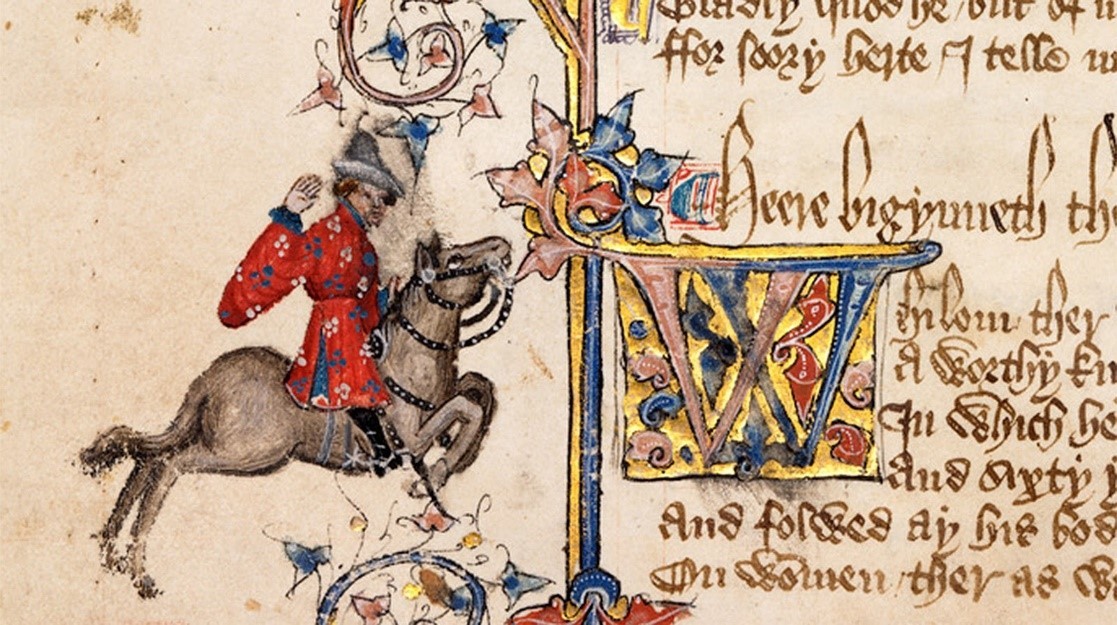 Gladly quod he / but of
ffor soory herte I telle
Heere bigynneth th
Whilom ther
A worthy kn
In which he
And sixty y
And folwed ay his bod
On wommen / ther as w